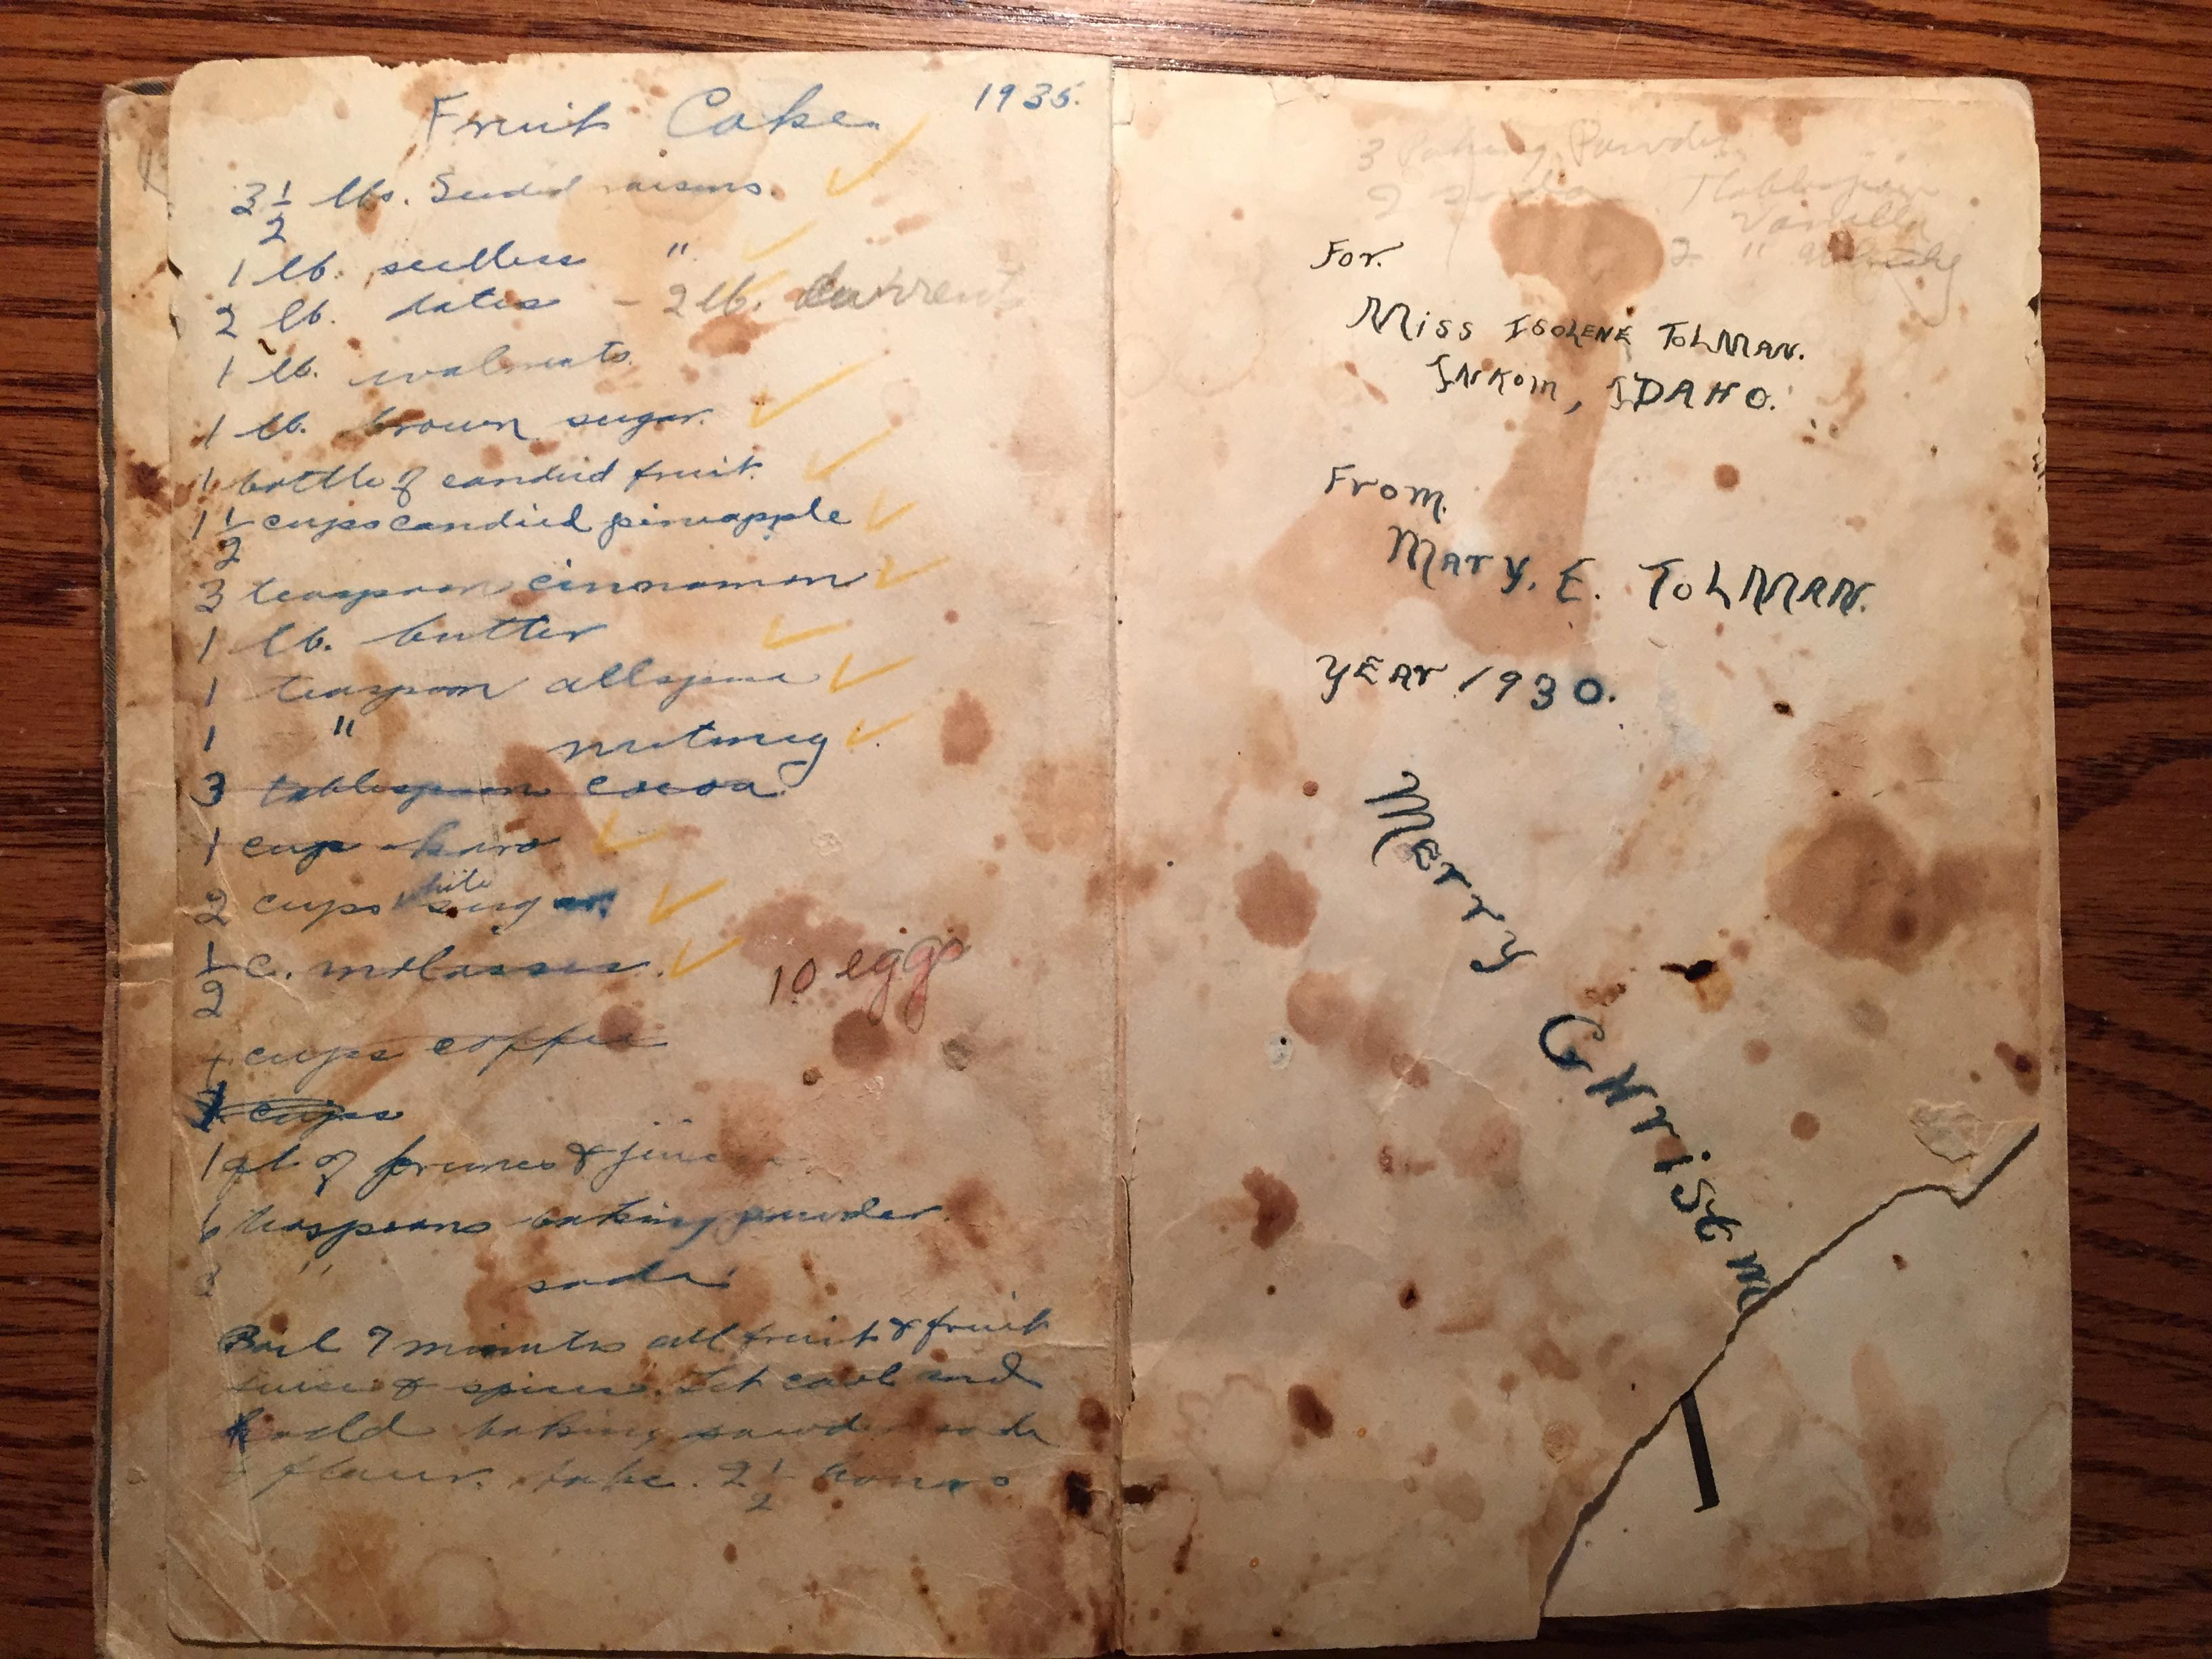 Fruit Cake 1935.
3 1/2 lbs. Seeded raisins.
1 lb. seedless "
2 lb. dates - 2 lb. Currents
1 lb. walnuts.
1 lb. brown sugar.
1 bottle of candied fruit.
1 1/2 cups candied pineapple
3 teaspoon cinnamon
1 lb. butter
1 teaspoon allspice
1 " nutmeg
3 tablespoon cocoa
1 cup karo
2 cups white sugar
1/2 c. molasses.
10 eggs
cups coffee
cups
1 qt of prunes & juice
6 teaspoons baking powder.
3 " soda
Boil 7 minutes all fruit & fruit
juice & spices. Let cool and
add baking powder soda
flour. bake. 2 1/2 hours
3 Baking Powder
2 soda 1 tablespoon
Vanilla
2 "
For.
Miss ISOLENE TOLMAN.
INKOM, IDAHO.
From.
MARY. E. TOLMAN.
YEAR 1930.
Merry CHristm